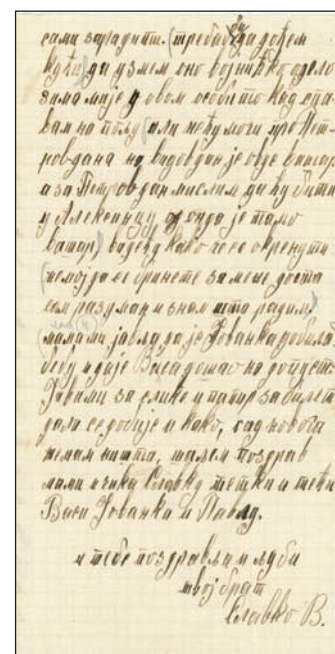 сами зарадити. (требао би да дођем
кући да узмем оно војничко одело
зима ми је у овом особито кад спа
вам на пољу) али нећу моћи пре Пет-
ровдана на видовдан је овде вашар
а за Петровдан мислим да ћу бити
у Алексинцу јер онда је тамо
вашар) видећу како ће се окренути
немој да се бринете за мене доста
сам разуман и знам шта радим.
мама ми јавља да је Јованка добила
бебу и да је Васа дошао на допуст.
Јави ми за слике и папир за билет
дали се добије и како, сад новога
немам ништа, шаљем поздрав
мами и чика Славку тетка и течи
Васи Јованка и Павлу.
и тебе поздравља и љуби
твој брат
Славко В.